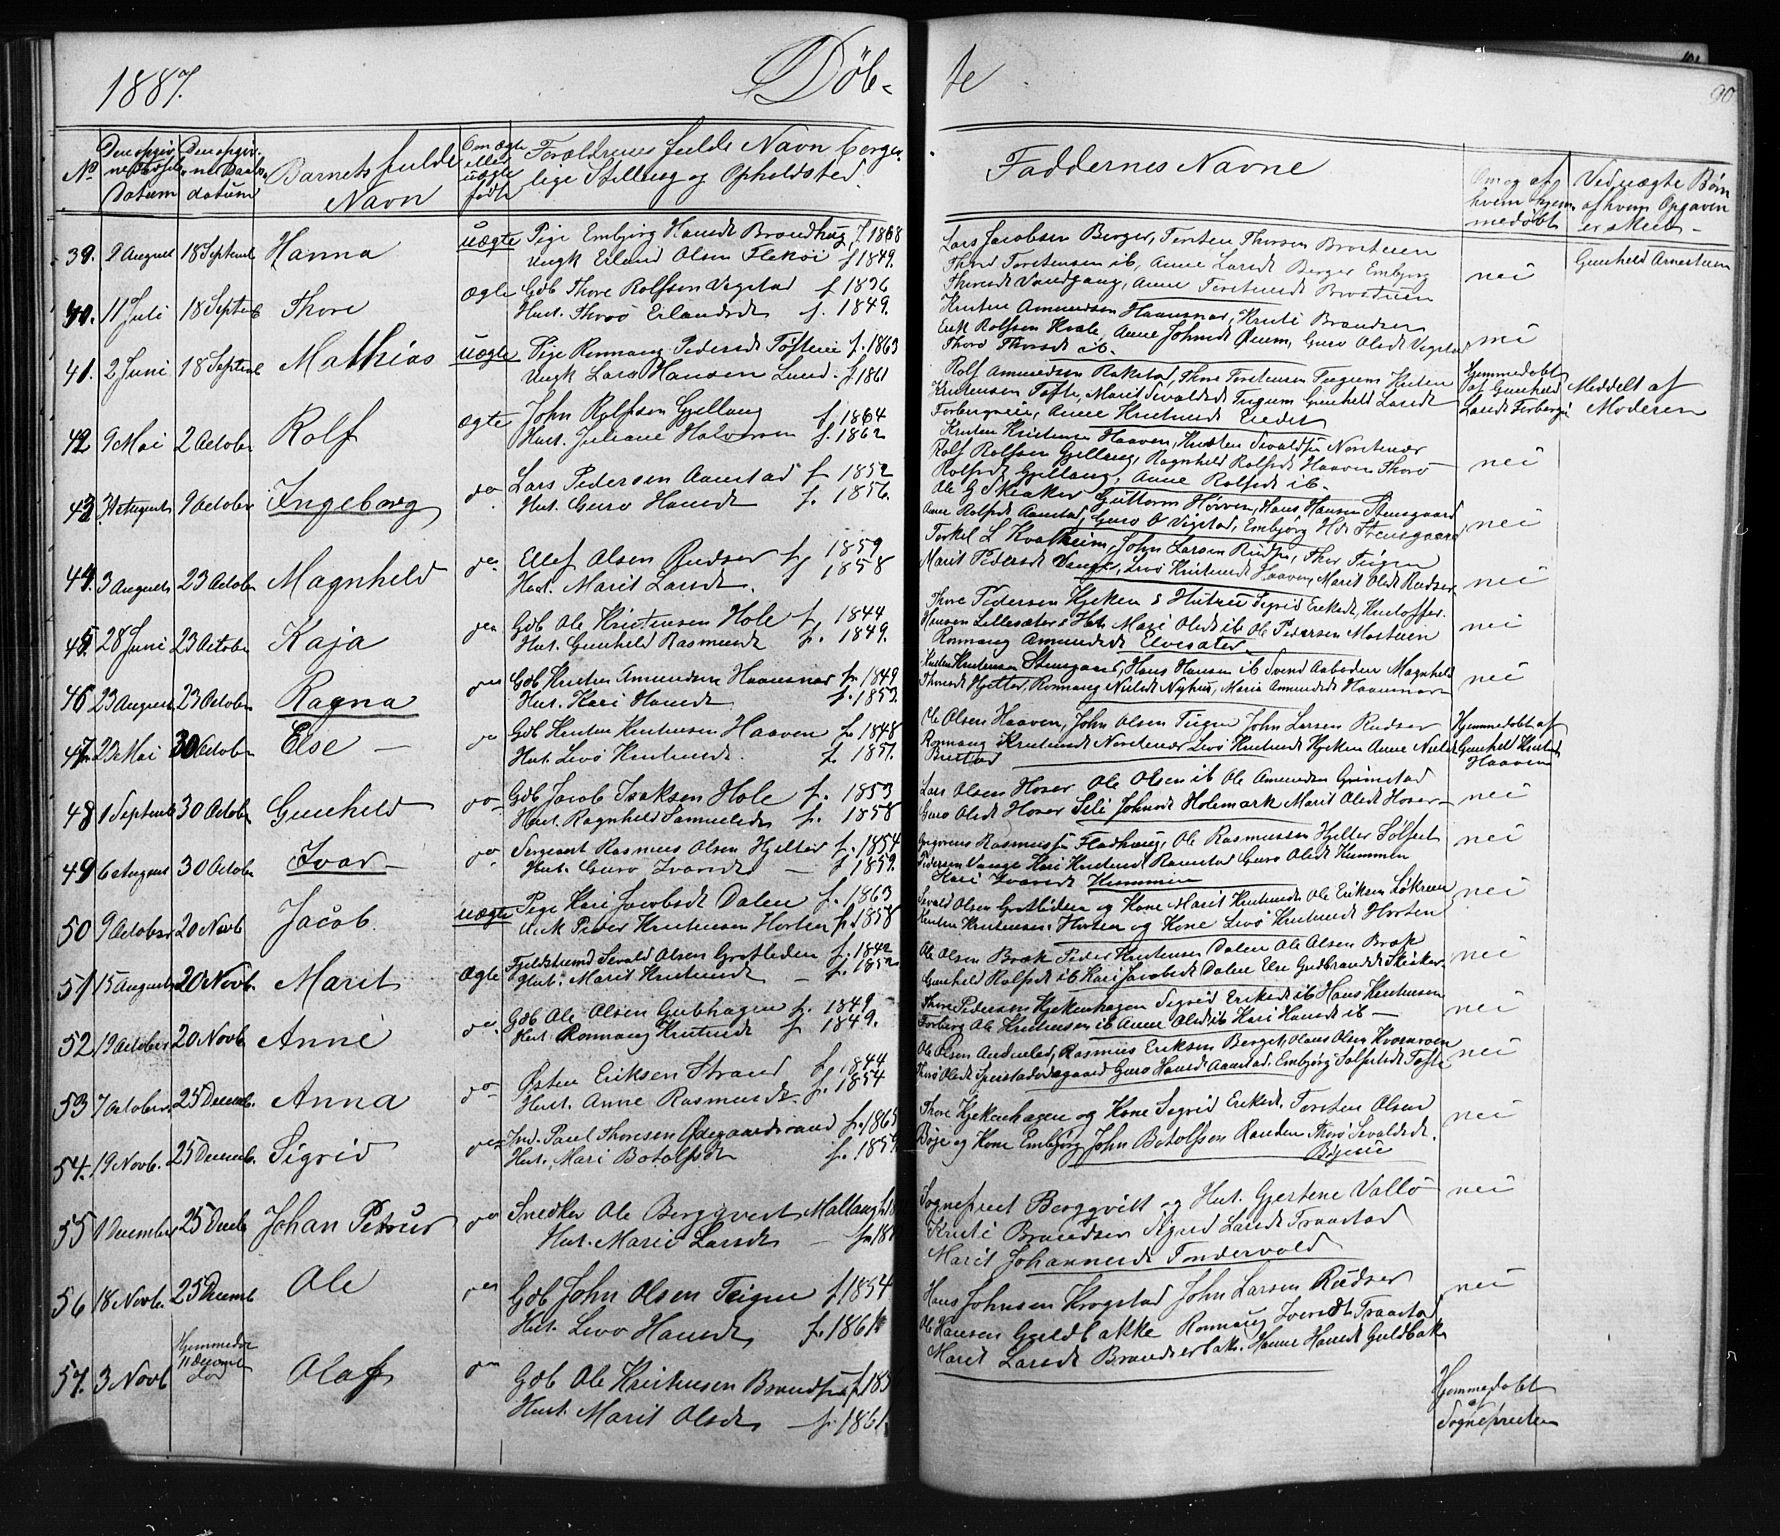 1887.
Døb-
te
90
No
Den opgiv-
ne Fødsels
Datum
Den opgiv-
ne Daabs-
datum
Barnets fulde
Navn
Om ægte
eller
uægte
født
Forældrenes fulde Navn borger-
lige Stilling og Opholdsted.
Faddernes Navne
Om og af
hvem hjem-
medøbt
Ved uægte Børn
af hvem Opgaven
er skeet
39. 9 August 18 Septemb Hanna uægte Pige Embjørg Hansdt Brandhug f. 1868
Ungk Erland Olsen Flekøi f 1849.
Lars Jacobsen Berger, Torsten Thorsen Brostuen
Thord Torstensen ib, Anne Larsdt Berger Embjørg
Thorsdt Vandgang, Anne Torstensdt Brostuen
nei
Gunhild Arnestuen
40. 11 Juli 18 Septeb Thore ægte Gdb Thore Rolfsen Vigstad f 1836
Hust. Thorø Erlandsdt f. 1849.
Kristen Amundsen Haansnar, Kristi Brandser
Erik Rolfsen Kvale, Anne Johnsdt Øium, Guro Olsdt Vigstad
Thorø Thorsdt ib.
nei
41. 2 Juni 18 Septemb Mathias uægte Pige Ronnaug Pedersdt Tøftun f. 1863
Ungk Lars Hansen Lund. f 1861
Rolf Amundsen Rakstad, Thore Torstensen Teigum Kristen
Kristensen Tofte, Marit Sevaldsdt Teigum Gunhild Larsdt
Forbergseie, Anne Kristensdt
Hjemmedøbt
af Gunhild
Larsdt Forbergs
Meddelt af
Moderen
42 9 Mai 2 Octobr Rolf ægte John Rolfsen Gjellaug f. 1864
Hust. Juliane Halvorsen f. 1862
Kristen Kristensen Haaven, Kristen Sevaldsen Norstenær
Rolf Rolfsen Gjellaug, Ragnhild Rolfsdt Haaven Thorø
Rolfsdt Gjellaug, Anne Rolfsdt ib.
nei
43. August 9 October Ingeborg do Lars Pedersen Aamstad f 1852
Hust. Guro Hansdt f. 1856.
Ole G Skiaker Guttorm Hørven, Hans Hansen Stensgaard
Anne Rolfsdt Aamstad, Guro O Vigstad, Embjørg Hdt Stensgaard
nei
44. 3 Augusts 23 Octobr Magnhild do Ellef Olsen Rudser f. 1859
Hust. Marit Larsdt. f 1858
Torkel L Kvalheim, John Larsen Rudser, Thor Teigen
Marit Pedersdt Vange, Livø Kristensdt Haaven, Marit Olsdt Rudser
nei
45. 28 Juni 23 Octobr Kaja do Gdb Ole Kristensen Hole f 1844
Hust. Gunhild Rasmusdt f. 1849.
Thore Pedersen Hjeken Sigrid Eriksdt, Kristoffer
Hansen Lillesæter Mari Olsdt ib Ole Pedersen Mostuen
Ronnaug Amundsdt Elvesæter
nei
46 23 August 23 Octobr Ragna do Gdb Kristen Amundsen Haansnar f. 1849
Hust. Kari Hansdt f. 1853.
Kristen Kristensen Stensgaard, Hans Hansen ib Svend Aabøden Magnhild
Thorsdt Hjeltar, Ronnaug Nielsdt Nyhus, Marie Amundsdt Haansnar
nei
47. 23 Mai 30 Octobr Else — do Gdb Kristen Kristensen Haaven f. 1848
Hust. Livø Kristensdt. f. 1857.
Ole Olsen Haaven, John Olsen Teigen John Larsen Rudser
Ronnaug Kristensdt Norstenær Livø Kristensdt Hjeken Anne Nielsdt
Hjemmedøbt af
Gunhild Kristensdt
Haaven
48 1 Septemb 30 Octobr Gunhild do Gdb Jacob Isaksen Hole f. 1853
Hust. Ragnhild Samuelsdt f. 1858
Lars Olsen Hoser Ole Olsen ib Ole Amundsen Grimstad
Guro Olsdt Hoser Seli Johnsdt Holemark Marit Olsdt Hoser
nei
49 6 August 30 Octobr Ivar — do Sergeant Rasmus Olsen Hjeltar f. 1854
Hust. Guro Ivarsdt — f 1859.
Gregorius Rasmussen Fladhaug, Ole Rasmussen Hjelter Sølfest
Pedersen Vange Kari Kristensdt Raamstad Guro Olsdt Kummen
Kari Ivarsdt Kummen
nei
50 9 October 20 Novb Jacob. uægte Pige Kari Jacobsdt Dalen f. 1863
U.M. Peder Kristensen Horten f. 1858
Sevald Olsen Grotlien og Kone Marit Kristensdt Ole Eriksen Løkren
Kristen Kristensen Horten og Kone Livø Kristensdt Horten
nei
51 15 August 20 Novb. Marit ægte Fjeldstumd Sevald Olsen Grotleden f. 1842
Hust. Marit Kristensdt — f. 1852
Ole Olsen Bræk Peder Kristensen Dalen Ole Olsen Bræk
Gunhild Rolfsdt ib Kari Jacobsdt Dalen Else Gudbrandsdt Skiaker
nei
52 19 October 20 Novb Anne do Gdb Ole Olsen Gubhagen f. 1849
Hust. Ronnaug Knutsdt f 1849.
Thore Pedersen Hjekenhagen Sigrid Eriksdt ib Hans Kristensen
Forberg Ole Kristensen ib Anne Olsdt ib Kari Hansdt ib —
nei
53 7 October 25 Decemb. Anna do Østen Eriksen Strand f. 1844
Hust. Anne Rasmusdt f. 1854
Ole Olsen Anderled, Rasmus Eriksen Berget, Olaus Olsen Kvernroen
Thorø Olsdt Guro Hansdt Aamstad. Embjørg Solfestdt Tofte
nei
54. 19 Novb. 25 Decemb. Sigrid do Ind. Paul Thoresen Ødegaardsrand f. 1865
Hust. Mari Botolfsdt f. 1859.
Thore Hjekenhagen og Kone Sigrid Eriksdt. Torsten Olsen
Bøje og Kone Embjørg, John Botolfsen Randen Thorø Sevaldsdt.
Bøjeeie
nei
55 1 December 25 Decb Johan Petrus do Snedker Ole Bergqvist Mallaug
Hust. Marie Larsdt — f. 18
Sogneprest Bergqvist og Hust. Gjertine Vallø
Kristi Brandsen Sigrid Larsdt Traastad
Marit Johannesdt Tondervold
nei
56 18 Novb. 25 Decemb Ole do Gdb John Olsen Teigen f. 1854
Hust. Livø Hansdt f. 1861
Hans Johnsen Krogstad John Larsen Rudser
Ole Hansen Guldbakke Ronnaug Iversdt Traastad,
Marit Larsdt Brandserbak. Hanne Hansdt Guldbak
nei
57. 3 Novb Hjemmedøbt
11 Decemb
død
Olaf do Gdb Ole Kristensen Brandser f. 185
Hust. Marit Olsdt — f. 1861.
Hjemmedøbt
af
Sognepresten